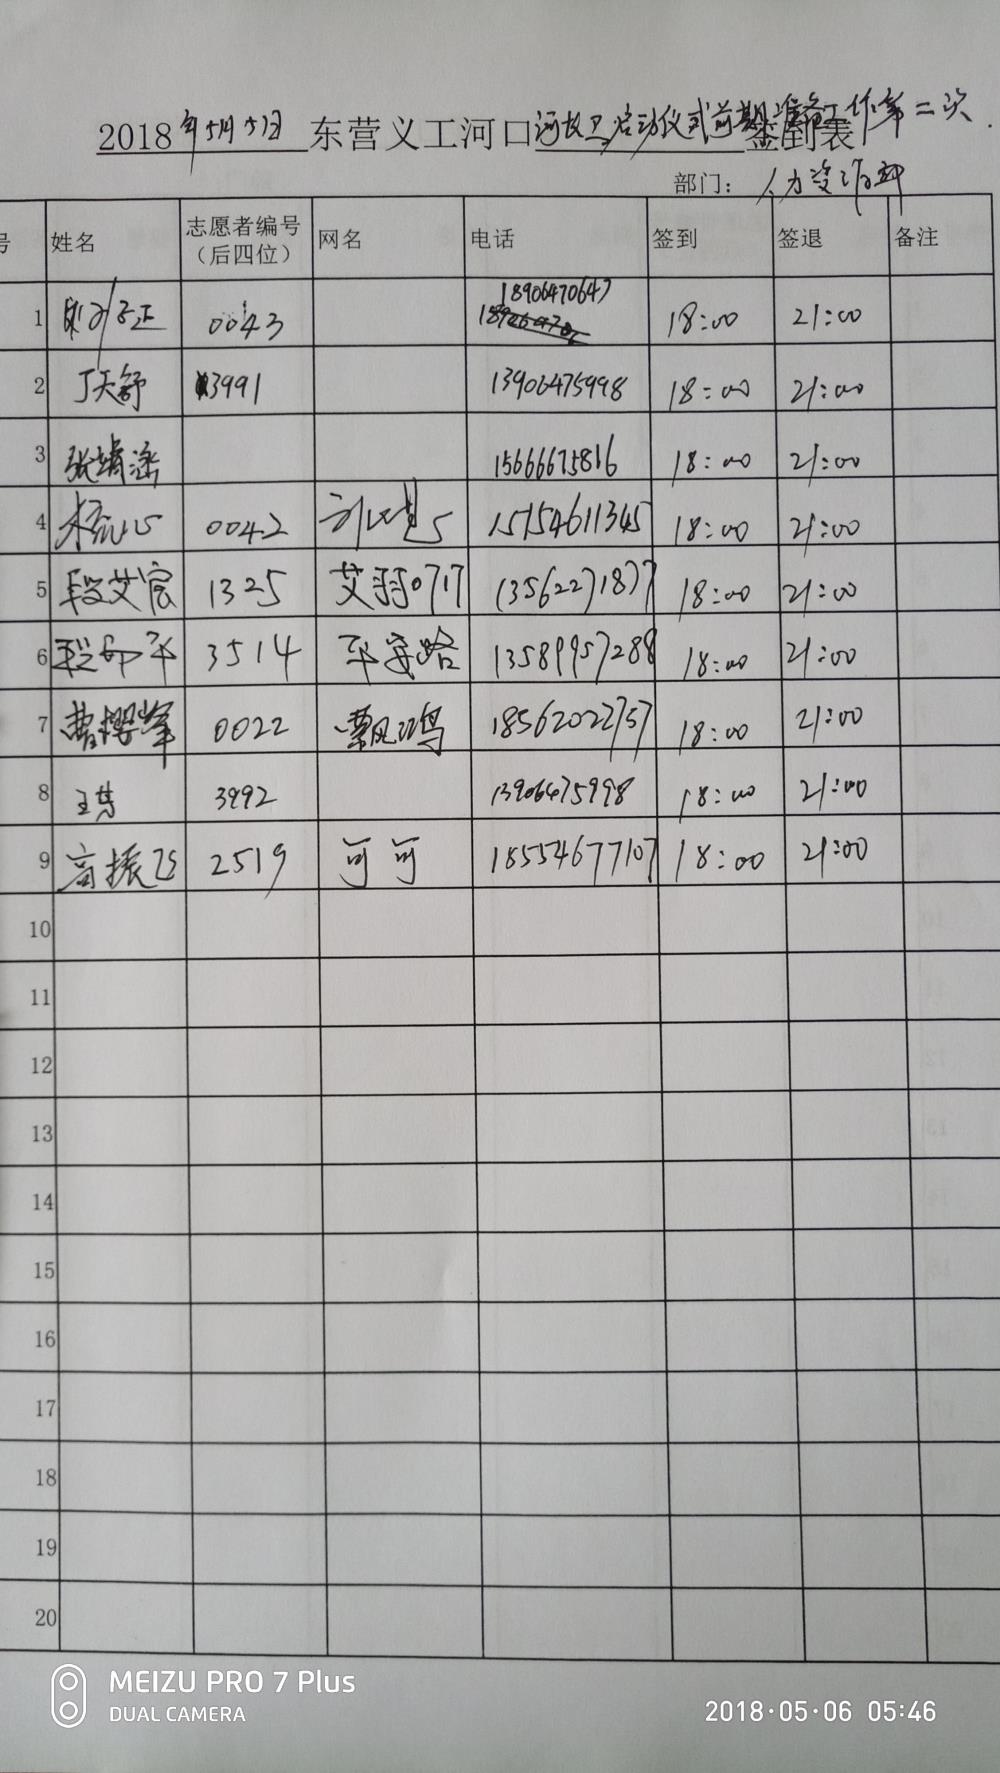 2018年5月5日 东营义工河口 启动仪式前期准备工作第二次 签到表
部门： 人力资源部
号 姓名 志愿者编号（后四位） 网名 电话 签到 签退 备注
1 0043 18906470647 18:00 21:00
2 丁天舒 3991 13906475998 18:00 21:00
3 张靖涵 15666675816 18:00 21:00
4 0042 15154611345 18:00 21:00
5 段艾宸 1325 艾羽0717 13562271877 18:00 21:00
6 3514 平安路 13589957288 18:00 21:00
7 曹樱峰 0022 飘鸿 18562022757 18:00 21:00
8 3992 13906475998 18:00 21:00
9 高振飞 2519 可可 18554677107 18:00 21:00
10
11
12
13
14
15
16
17
18
19
20
MEIZU PRO 7 Plus
DUAL CAMERA
2018·05·06 05:46